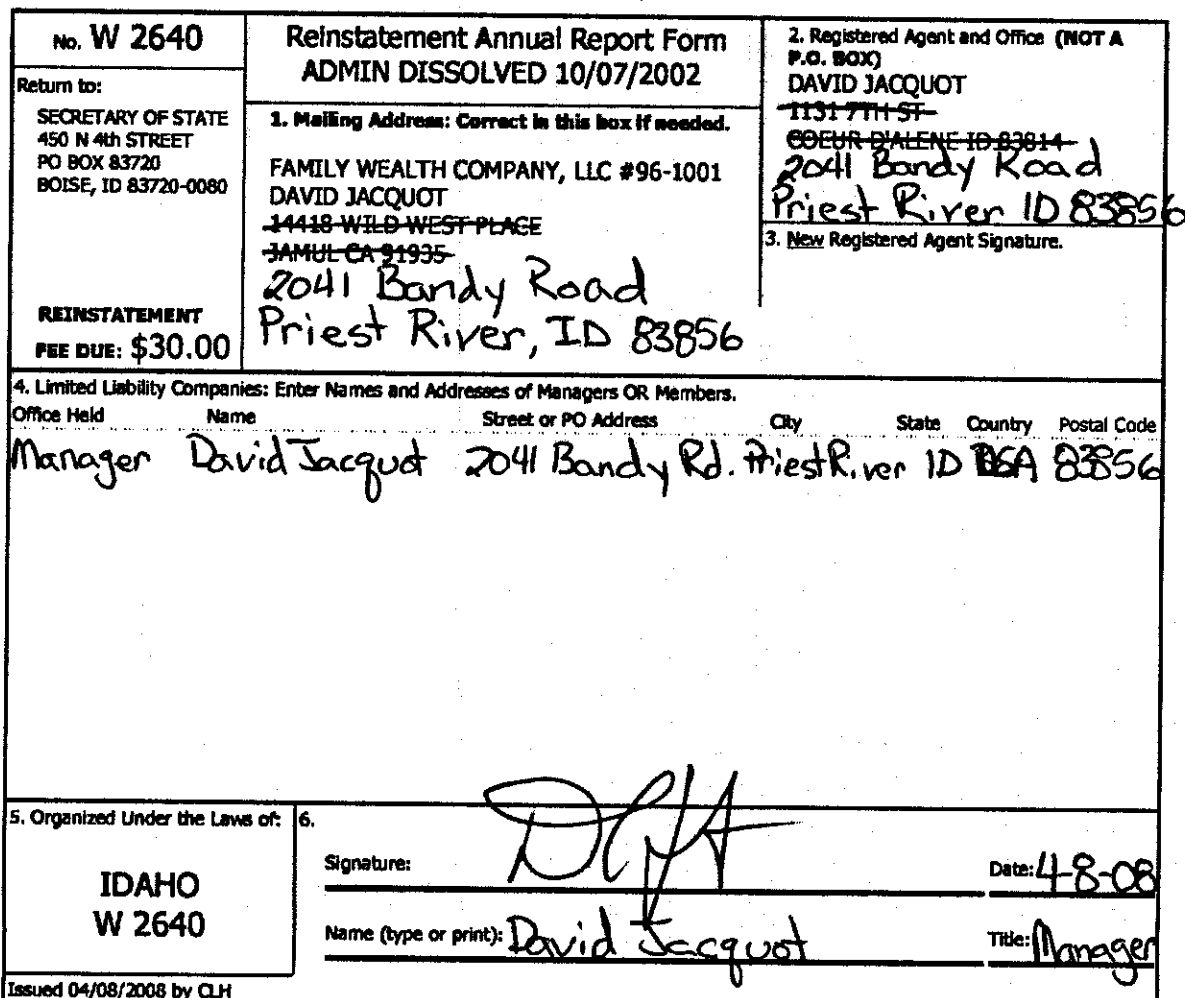 No. W 2640
Return to:
SECRETARY OF STATE
450 N 4th STREET
PO BOX 83720
BOISE, ID 83720-0080
REINSTATEMENT
FEE DUE: $30.00
Reinstatement Annual Report Form
ADMIN DISSOLVED 10/07/2002
1. Mailing Address: Correct in this box if needed.
FAMILY WEALTH COMPANY, LLC #96-1001
DAVID JACQUOT
14418 WILD WEST PLACE
JAMUL CA 91935
2041 Bandy Road
Priest River, ID 83856
2. Registered Agent and Office (NOT A
P.O. BOX)
DAVID JACQUOT
1131 7TH ST
COEUR D'ALENE ID 83814
2041 Bandy Road
Priest River ID 83856
3. New Registered Agent Signature.
4. Limited Liability Companies: Enter Names and Addresses of Managers OR Members.
Office Held Name Street or PO Address City State Country Postal Code
Manager David Jacquot 2041 Bandy Rd. Priest River ID USA 83856
5. Organized Under the Laws of:
IDAHO
W 2640
6.
Signature:
Date: 4-8-08
Name (type or print): David Jacquot
Title: Manager
Issued 04/08/2008 by CLH